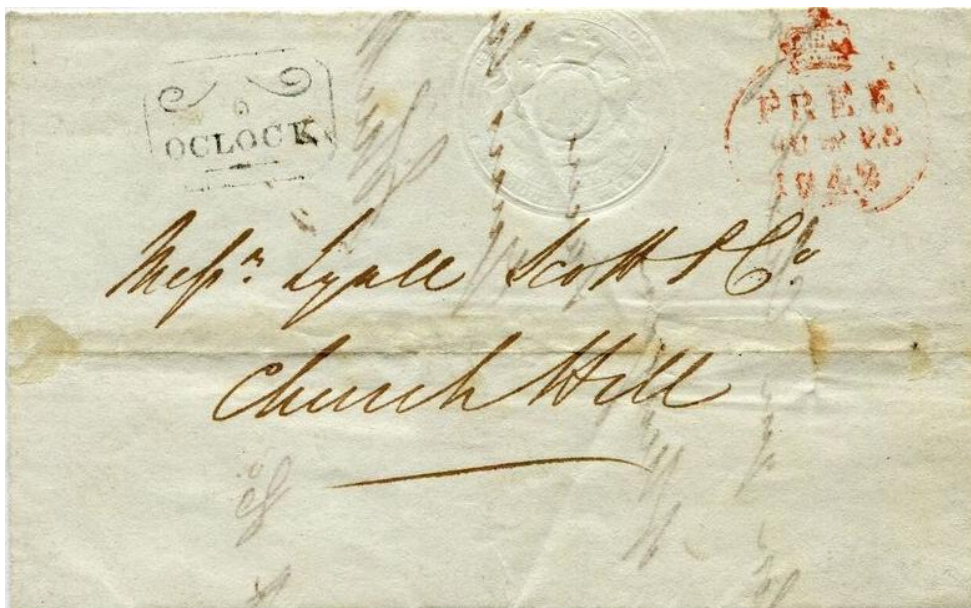 OCLOCK
FREE
Messrs. Lyall Scott & Co.
Church Hill